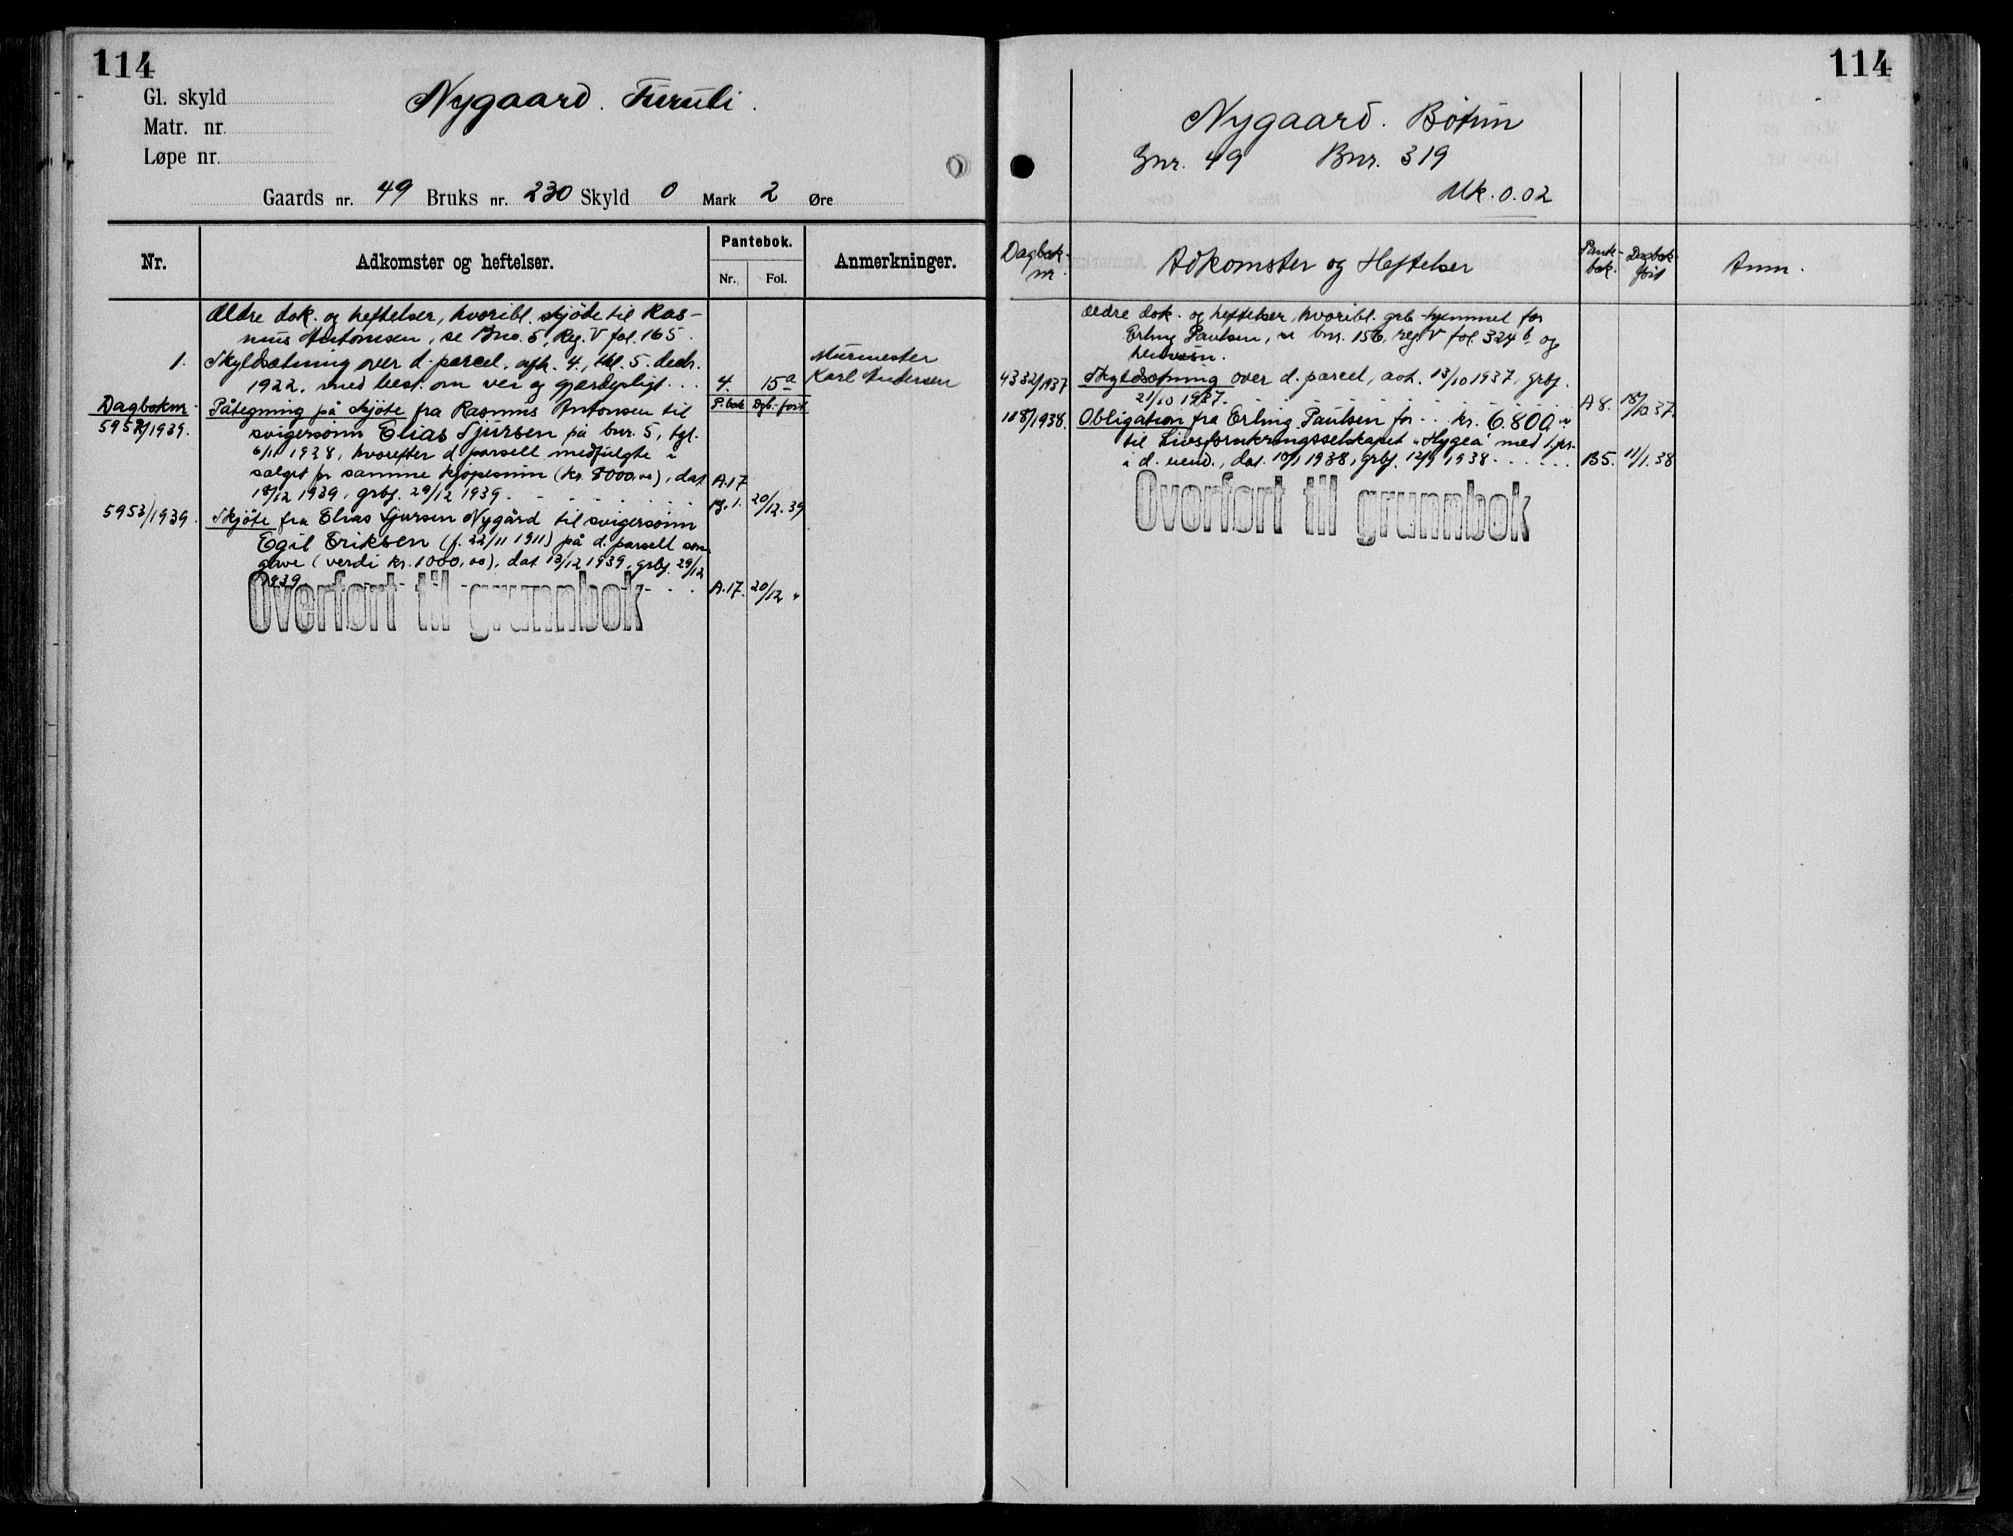 114
Gl. skyld
Matr. nr.
Løpe nr.
Nygaard. Furuli.
Gaards nr. 49 Bruks nr. 230 Skyld 0 Mark 2 Øre
Nr.
Adkomster og heftelser.
Pantebok.
Nr.
Fol.
Anmerkninger.
Ældre dok. og heftelser, hvoribl. skjöte til Ras-
mus Antonsen, se Bno. 5, Reg. V fol. 165.
1. Skyldsætning over d. parcel, afh. 4., tbl. 5. decbr.
1922, med best. om vei og gjerdepligt. 4. 15a
Murmester
Karl Andersen
Dagboknr. Påtegning på skjöte fra Rasmus Antonsen til P.bok Dgb. ført
5952/1939. svigersønn Elias Sjursen på bnr. 5, tgl.
6/11 1928, hvorefter d. parsell medfulgte i
salget for samme kjøpesum (kr. 8000,00), dat.
18/12 1939, grbf. 29/12 1939. A.17 20/12.39
5953/1939. Skjöte fra Elias Sjursen Nygård til svigersønn
Egil Eriksen (f. 22/11 1911) på d. parsell som
gave (verdi kr. 1000,00), dat 13/12 1939, grbf. 29/12
1939 A.17. 20/12 "
Overført til grunnbok
114
Nygaard. Bøtun
Gnr. 49 Bnr. 319
Mk. 0.02
Dagbok-
nr.
Adkomster og Heftelser
Pante-
bok.
Dagbok-
ført
Anm.
Ældre dok. og heftelser, hvoribl. grb hjemmel for
Erling Paulsen, se bnr. 156, reg V fol. 324 b og
henvisn.
4332/1937 Skyldsetning over d. parcel, avh. 13/10 1937, grbf.
21/10 1937. A 8. 18/10 37
118/1938. Obligation fra Erling Paulsen for kr. 6.800,-
til Livsforsikringsselskapet "Hygea" med 1. pr.
i d. eiend., dat. 10/1 1938, grbf. 12/1 1938 B5. 11/1.38
Overført til grunnbok